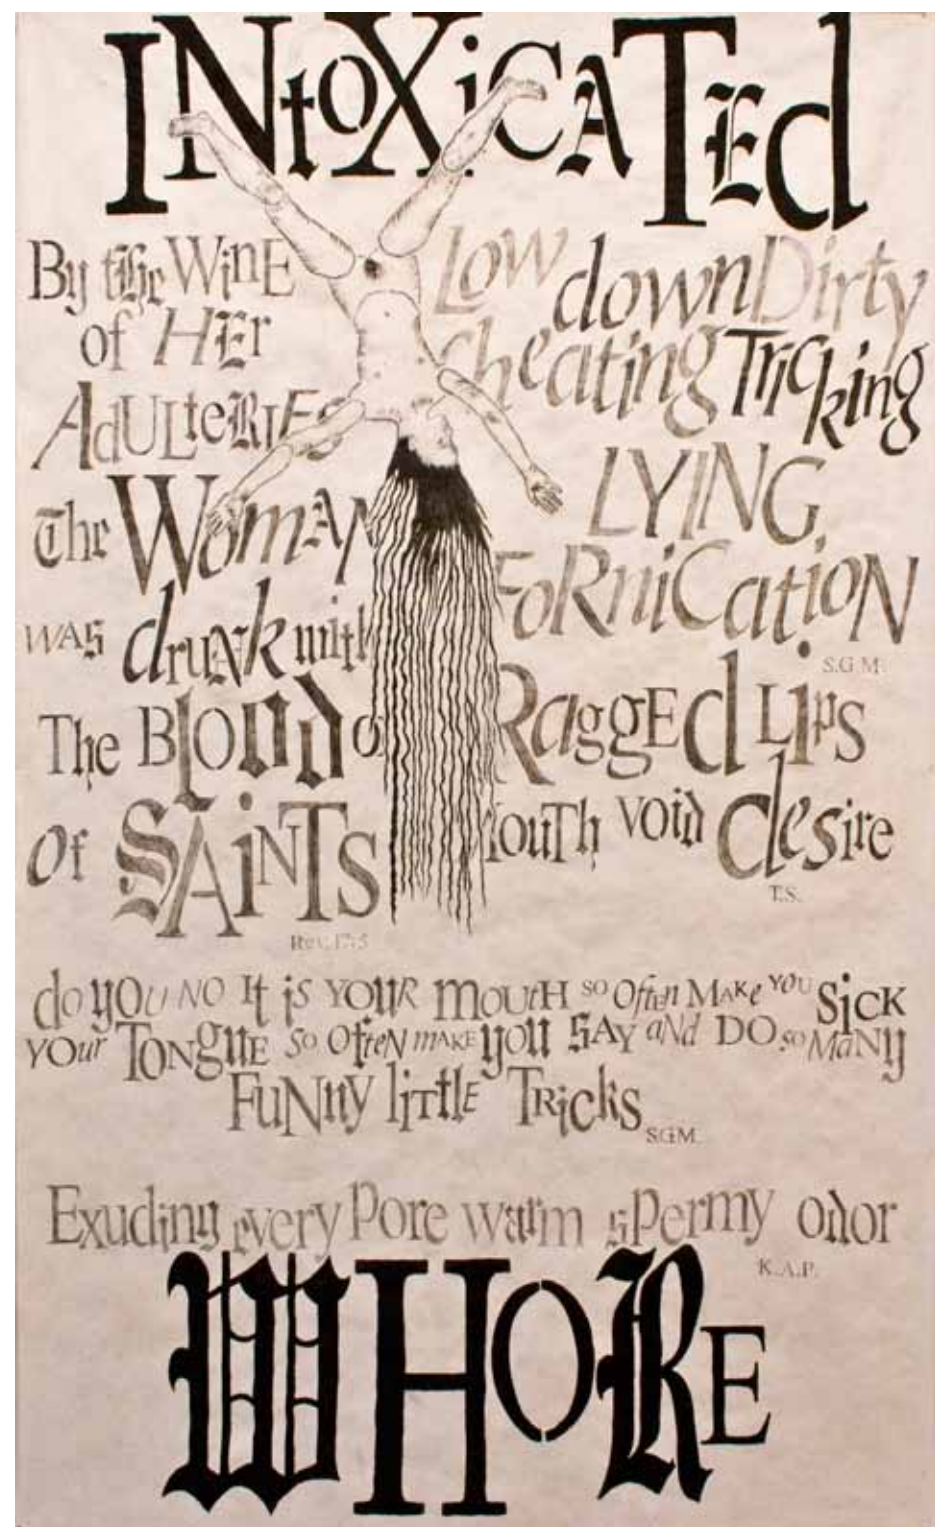 INtOXiCATEd
By the WinE
of HEr
AdULteRIEs
The WomAN
WAS drunk with
The Blood of
Of SAiNTS
Rev. 17:5
Low down Dirty
cheating Tricking
LYING,
FoRniCatioN
S.G.M.
RaggEd Lips
MouTh void desire
T.S.
do yOU NO It is YOUR mOUtH SO Often MAKe YOU SiCK
YOur TONgUE So OfteN mAKE you SAY aNd DO so MaNy
FuNNy liTtlE TRicks
S.G.M.
Exuding every Pore warm sPermy odor
K.A.P.
WHORE